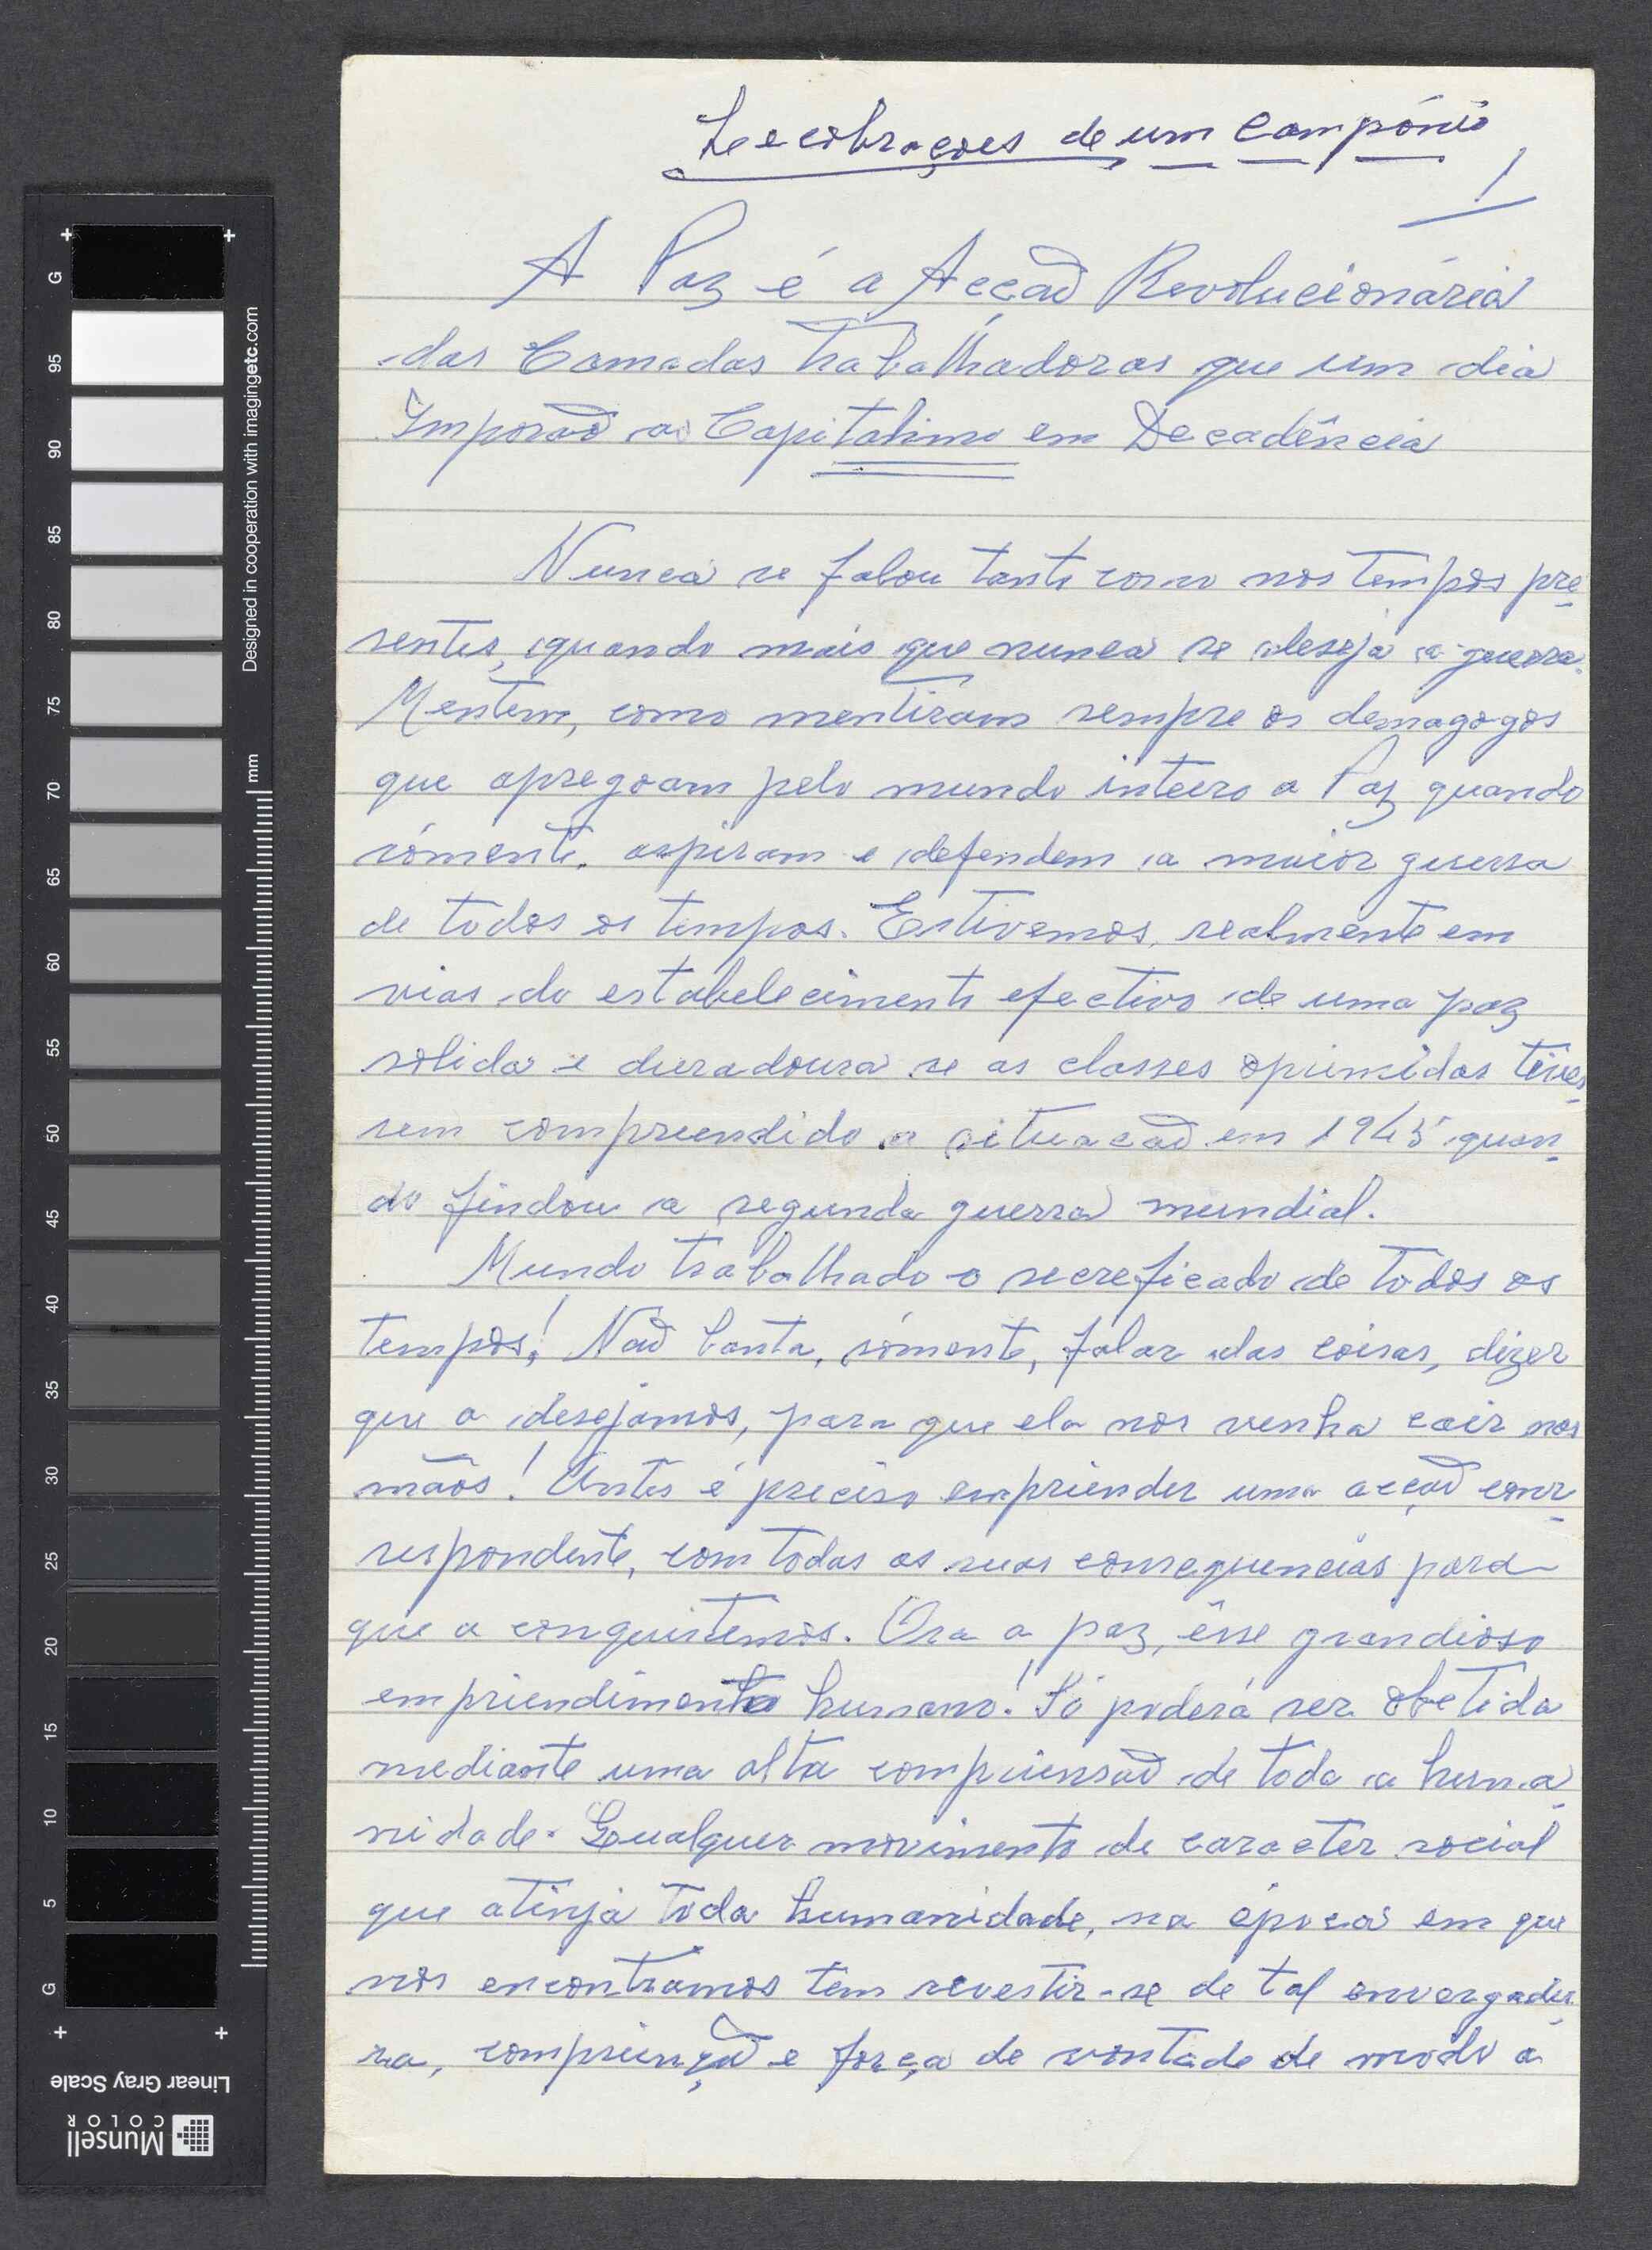 Leecobrações de um Campónio
1
A Paz é a Acção Revolucionária
das Camadas trabalhadoras que um dia
Imporão ao Capitalimo em Decadência
Nunca se falou tanto como nos tempos pre-
sentes, quando mais que nunca se deseja a guerra.
Mentem, como mentiram sempre os demagogos
que apregoam pelo mundo inteiro a Paz quando
sómente, aspiram e defendem a maior guerra
de todos os tempos. Estivemos, realmente em
vias do estabelecimento efectivo de uma paz
solida e duradoura se as classes oprimidas tives-
sem compreendido a situacão em 1945 quan-
do findou a segunda guerra mundial.
Mundo trabalhado o secreficado de todos os
tempos! Não basta, sómente, falar das coisas, dizer
que a desejamos, para que ela nos venha cair nas
mãos! Antes é preciso empriender uma acção corr-
respondente, com todas as suas consequencias para
que a conquistemos. Ora a paz, êsse grandioso
empriendimento humano! Só poderá ser obetida
mediante uma alta compriensão de toda a huma-
nidade. Qualquer movimento de caracter social
que atinja toda humanidade, na época em que
nos encontramos tem revestir-se de tal envergadu-
ra, comprienção e força de vontade de modo a
Designed in cooperation with imagingetc.com
mm
G
95
90
85
80
75
70
65
60
55
50
45
40
35
30
25
20
15
10
5
G
Linear Gray Scale
Munsell
COLOR